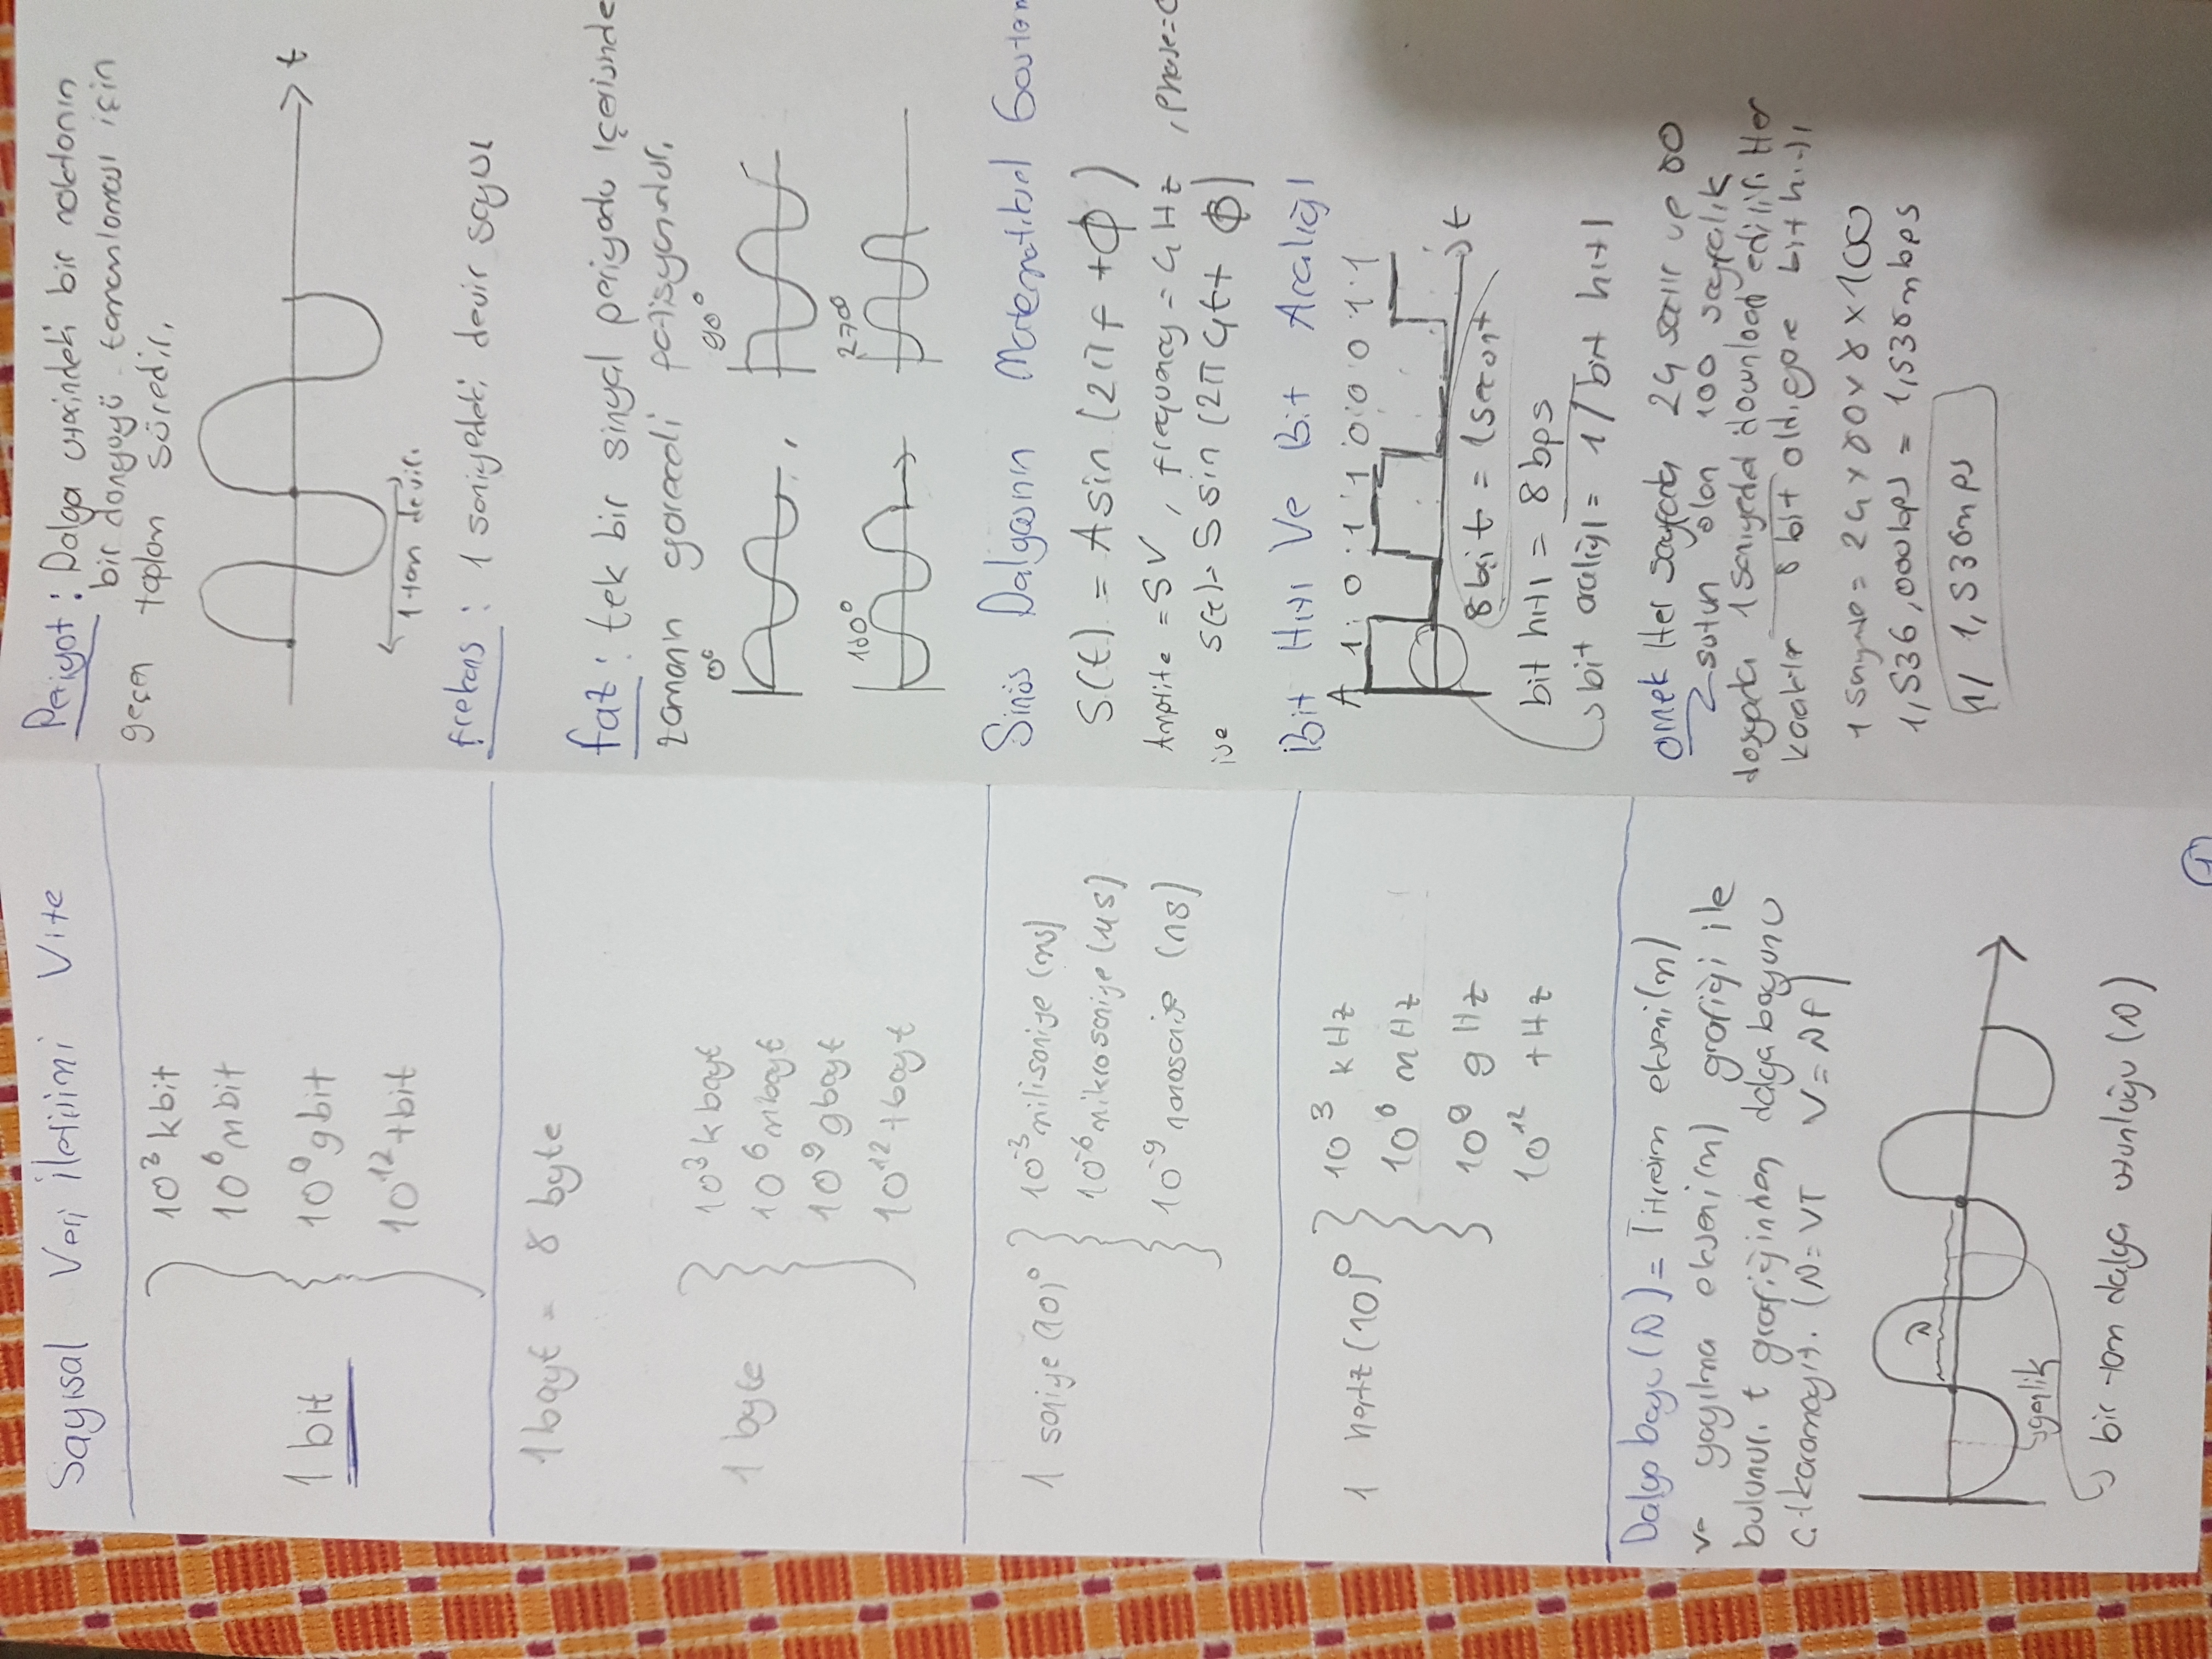 Sayısal Veri iletisimi Vize
1 bit
10³ kbit
10⁶ mbit
10⁹ gbit
10¹² tbit
1 bayt = 8 byte
1 byte
10³ k bayt
10⁶ mbayt
10⁹ gbayt
10¹² tbayt
1 saniye (10)⁰
10⁻³ milisaniye (ms)
10⁻⁶ mikrosaniye (μs)
10⁻⁹ nanosaniye (ns)
1 hertz (10)⁰
10³ kHz
10⁶ mHz
10⁹ gHz
10¹² tHz
Dalga boyu (λ) = Titresim ekseni(m)
ve yayılma ekseni(m) grafiği ile
bulunur. t grafiğinden dalga boyunu
çıkaramayız. (λ = VT V = λf)
λ
genlik
bir tam dalga uzunluğu (λ)
1
Periyot : Dalga üzerindeki bir noktanın
bir döngüyü tamamlaması için
geçen toplam süredir.
t
1 tam devir.
frekans : 1 saniyedeki devir sayısı
faz : tek bir sinyal periyodu içerisinde
zamanın göreceli pozisyonudur.
0° 90°
180° 270°
Sinüs Dalgasının Matematiksel
S(t) = A sin (2πf + Φ)
Amplite = 5V , frequency = 4 Hz , phase=
ise s(t) = 5 sin (2π4t + Φ)
Bit Hızı Ve Bit Aralığı
A 1 0 1 1 0 0 0 1 1
t
8 bit = 1 secont
bit hızı = 8 bps
bit aralığı = 1 / bit hızı
örnek Her sayfada 24 satır ve 80
sutun olan 100 sayfalık
dosyada 1 saniyede download edilir. Her
karakter 8 bit old. göre bit hızı
1 saniye = 24 x 80 x 8 x 100
1,536,000 bps = 1,536 mbps
1 / 1,536 mps